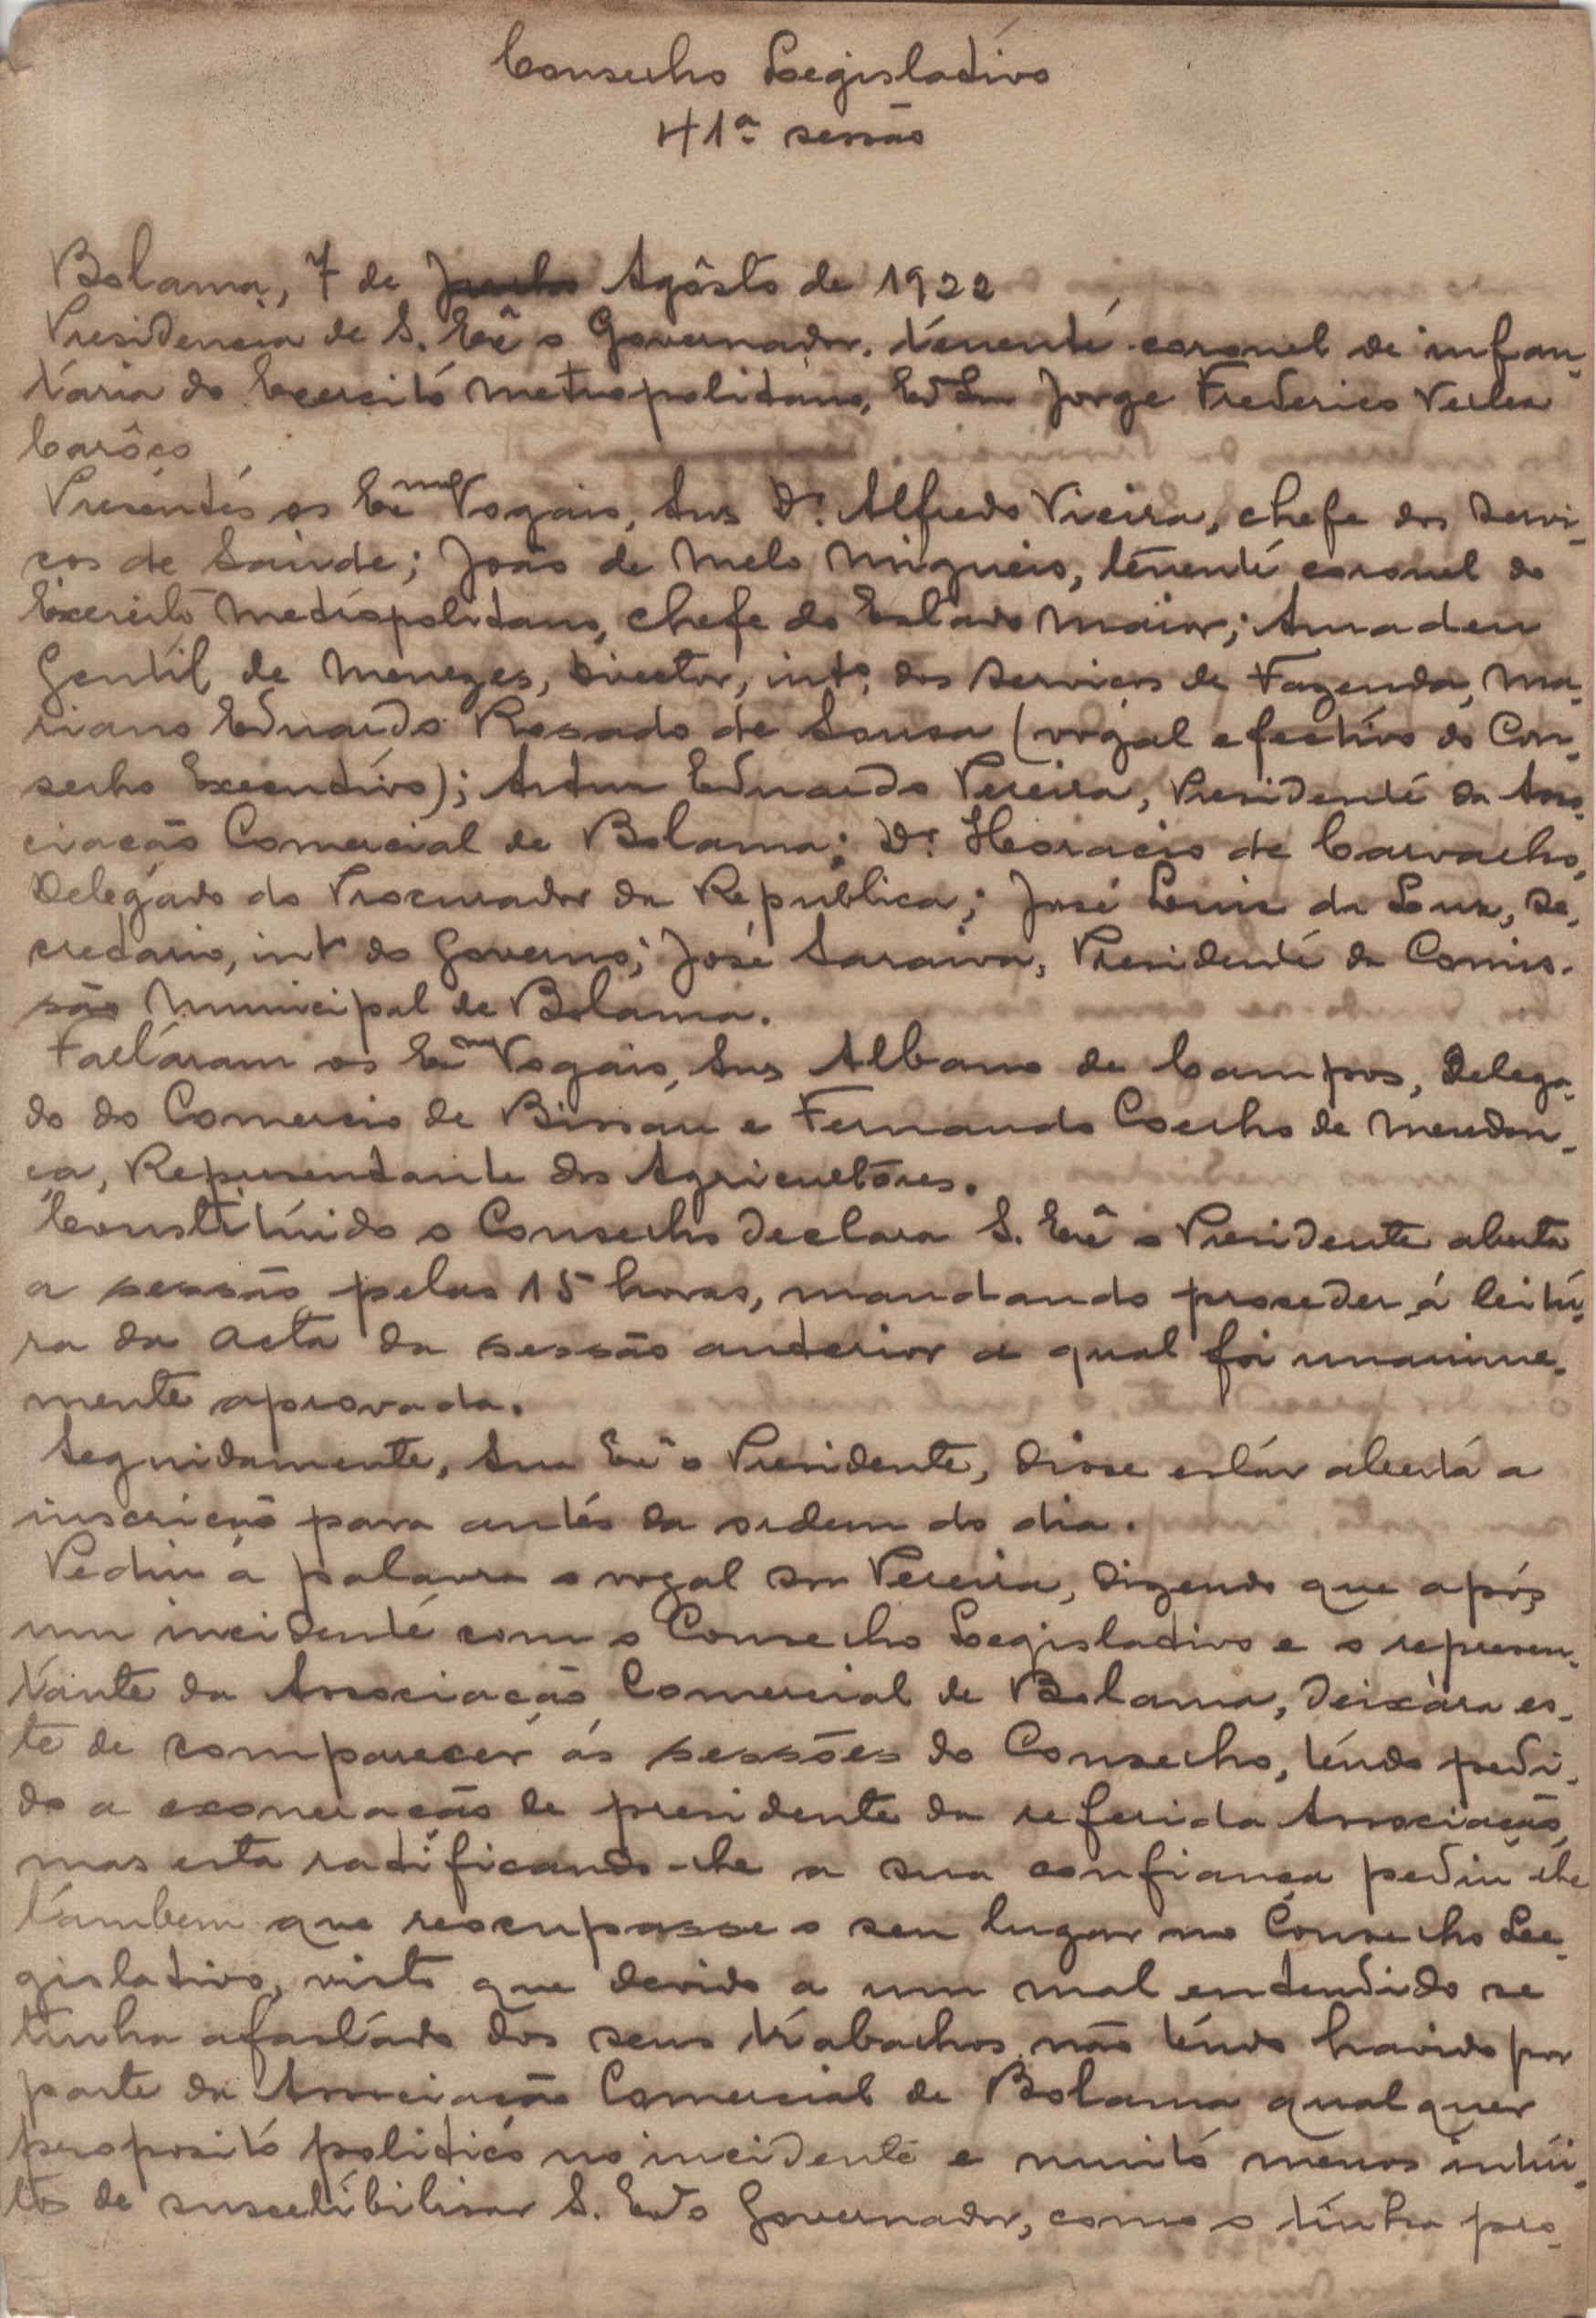 Conselho Legislativo
41ª sessão
Bolama, 7 de Agôsto de 1922
Presidencia de S. Exª o Governador, tenente coronel de infan-
taria do Exercito Metropolitano, Jorge Frederico Velez
Carôço
Presentes os Exmos Vogais, Snrs Dr. Alfredo Vieira, chefe dos Servi-
ços de Saúde; João de Melo Migueis, tenente coronel do
Exercito Metropolitano, chefe do Estado Maior; Amadeu
Gentil de Menezes, Director, intº, dos Serviços de Fazenda, Ma-
riano Eduardo Rosado de Sousa (vogal efectivo do Con-
selho Executivo); Artur Eduardo Pereira, Presidente da Asso-
ciação Comercial de Bolama; Dr. Horacio de Carvalho,
Delegado do Procurador da Republica; José Luis da Se-
cretario, intº do Governo; José Saraiva, Presidente da Comis-
são Municipal de Bolama.
Faltáram os Exmos Vogais, Snrs Albano de Campos, Delega-
do do Comercio de Bissau e Fernando Coelho de Mendon-
ça, Representante dos Agricultôres.
Constituido o Conselho declara S. Exª o Presidente aberta
a sessão pelas 15 horas, mandando proceder á leitu-
ra da acta da sessão anterior a qual foi unanime-
mente aprovada.
Seguidamente, Sua Exª o Presidente, disse estár aberta a
inscrição para antes da ordem do dia.
Pediu a palavra o vogal Snr Pereira, dizendo que após
um incidente com o Conselho Legislativo e o represen-
tante da Associação Comercial de Bolama, deixára es-
te de comparecer ás sessões do Conselho, tendo pedi-
do a exoneração de presidente da referida Associação,
mas esta ratificando-lhe a sua confiança pediu-lhe
tambem que reocupasse o seu lugar no Conselho Le-
gislativo, visto que devido a um mal entendido se
tinha afastado dos seus trabalhos, não tendo havido por
parte da Associação Comercial de Bolama qualquer
proposito politico no incidente e muito menos intui-
tos de suscetibilisar S. Exª o Governador, como o tinha pro-